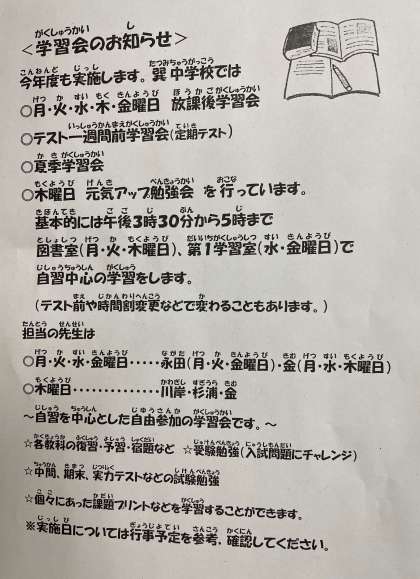 ＜学習会のお知らせ＞
今年度も実施します。巽中学校では
○月・火・水・木・金曜日 放課後学習会
○テスト一週間前学習会（定期テスト）
○夏季学習会
○木曜日 元気アップ勉強会 を行っています。
基本的には午後3時30分から5時まで
図書室（月・火・木曜日）、第1学習室（水・金曜日）で
自習中心の学習をします。
（テスト前や時間割変更などで変わることもあります。）
担当の先生は
○月・火・水・金曜日・・・・・永田（月・火・金曜日）・金（月・水・木曜日）
○木曜日・・・・・・・・・・・・・・川岸・杉浦・金
～自習を中心とした自由参加の学習会です。～
☆各教科の復習・予習・宿題など ☆受験勉強（入試問題にチャレンジ）
☆中間、期末、実力テストなどの試験勉強
☆個々にあった課題プリントなどを学習することができます。
※実施日については行事予定を参考、確認してください。